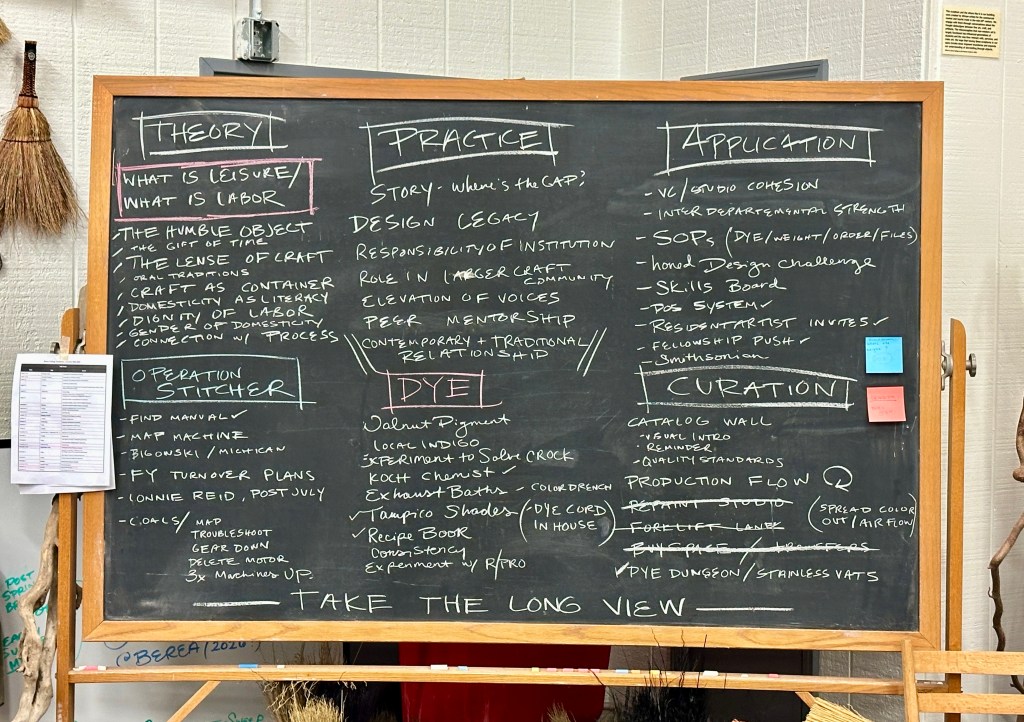 THEORY
WHAT IS LEISURE/
WHAT IS LABOR
THE HUMBLE OBJECT
THE GIFT OF TIME
THE LENSE OF CRAFT
ORAL TRADITIONS
CRAFT AS CONTAINER
DOMESTICITY AS LITERACY
DIGNITY OF LABOR
GENDER OF DOMESTICITY
CONNECTION W/ PROCESS
OPERATION
STITCHER
- FIND MANUAL ✓
- MAP MACHINE
- BIGOWSKI / MICHIGAN
- FY TURNOVER PLANS
- LONNIE REID, POST JULY
- GOALS/ MAP
TROUBLESHOOT
GEAR DOWN
DELETE MOTOR
3x Machines UP.
PRACTICE
STORY - Where's the GAP?
DESIGN LEGACY
RESPONSIBILITY OF INSTITUTION
ROLE IN LARGER CRAFT
COMMUNITY
ELEVATION OF VOICES
PEER MENTORSHIP
CONTEMPORARY + TRADITIONAL
RELATIONSHIP
DYE
Walnut Pigment
LOCAL INDIGO
EXPERIMENT to Solve CROCK
KOCH Chemist ✓
Exhaust Baths - COLOR DRENCH
✓ Tampico Shades (- DYE CORD
IN HOUSE)
✓ Recipe Book
Consistency
Experiment w/ R/PRO
APPLICATION
- VC/STUDIO COHESION
- INTERDEPARTEMENTAL STRENGTH
- SOPs (DYE/WEIGHT/ORDER/FILES)
- honed Design Challenge
- Skills Board
- POS SYSTEM ✓
- RESIDENT ARTIST INVITES ✓
- FELLOWSHIP PUSH ✓
- Smithsonian
CURATION
CATALOG WALL
- VISUAL INTRO
- REMINDER
- QUALITY STANDARDS
PRODUCTION FLOW
REPAINT STUDIO
FORKLIFT LANE
(SPREAD COLOR
OUT / AIRFLOW)
BUY SPACE / TRANSFERS
✓ DYE DUNGEON / STAINLESS VATS
TAKE THE LONG VIEW
@BEREA/2026